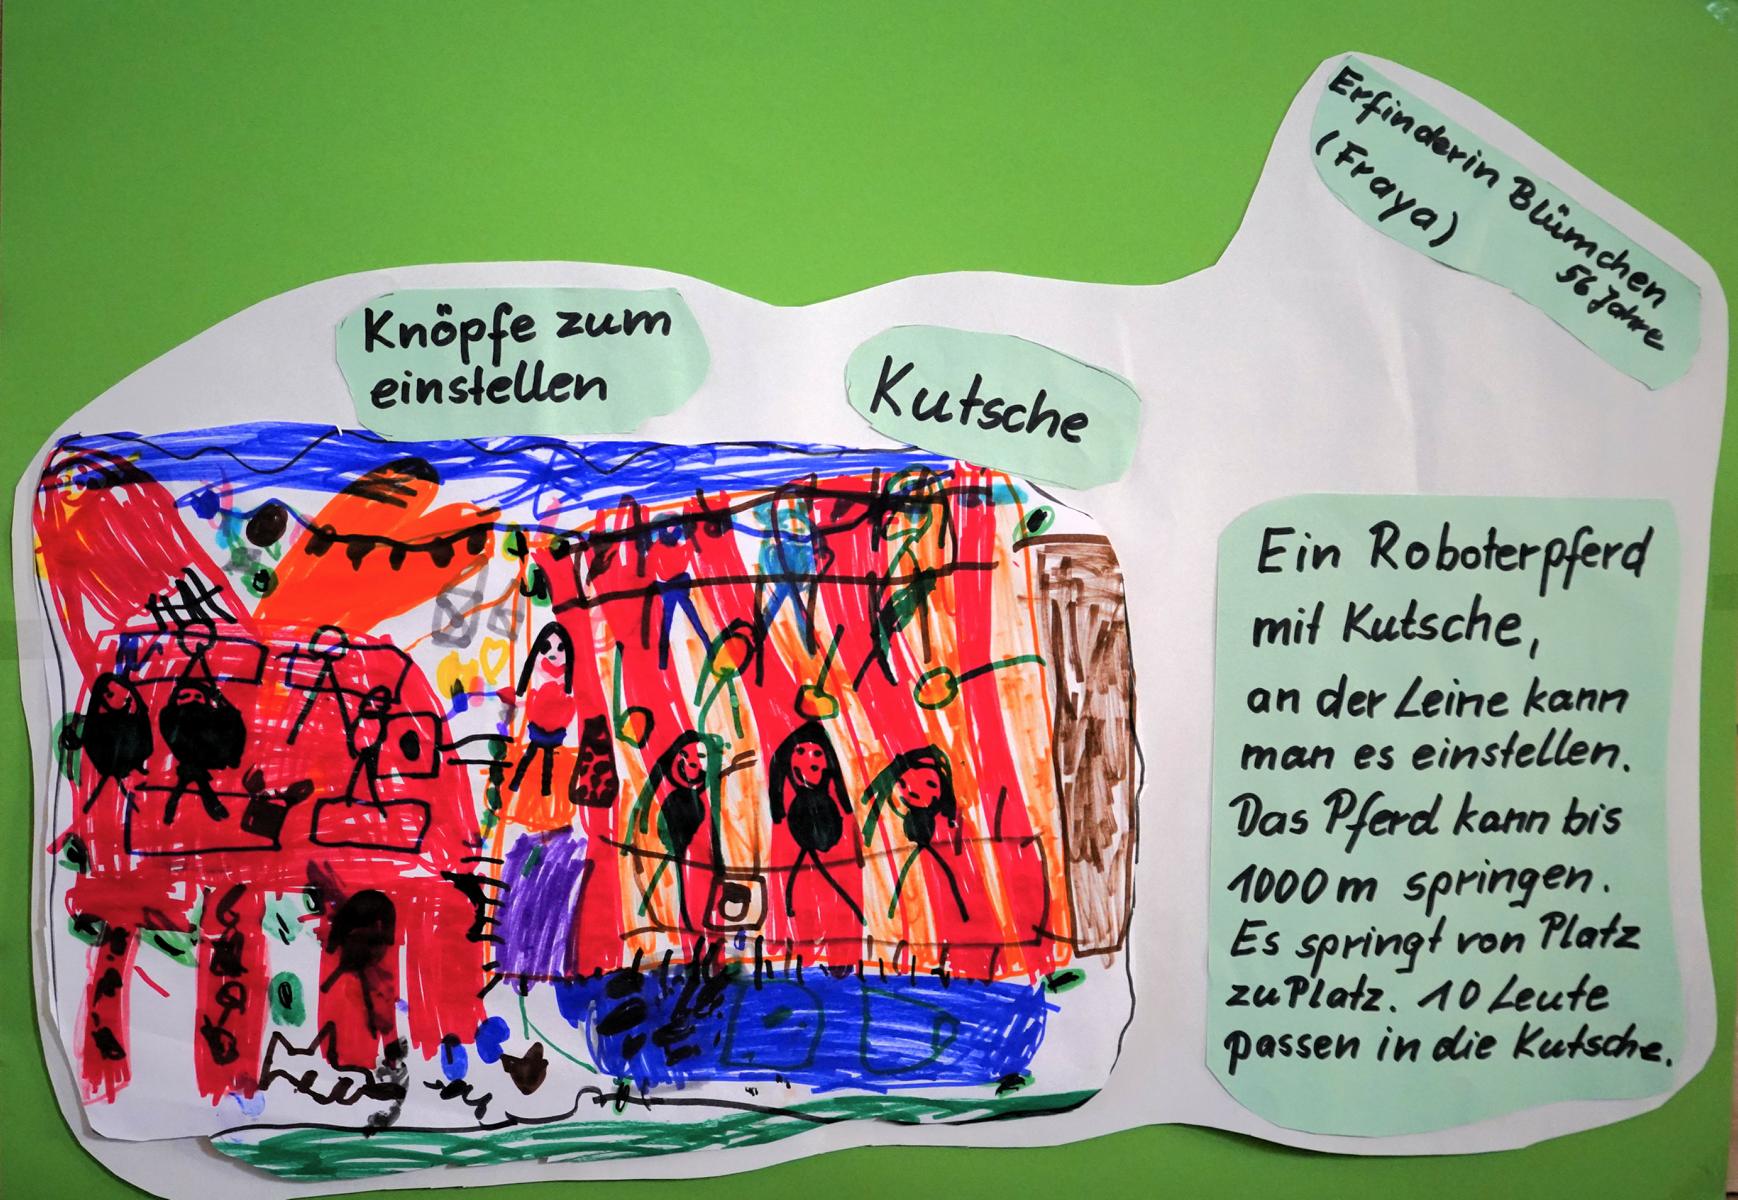 Erfinderin Blümchen
(Fraya) 56 Jahre
Knöpfe zum
einstellen
Kutsche
Ein Roboterpferd
mit Kutsche,
an der Leine kann
man es einstellen.
Das Pferd kann bis
1000m springen.
Es springt von Platz
zu Platz. 10 Leute
passen in die Kutsche.